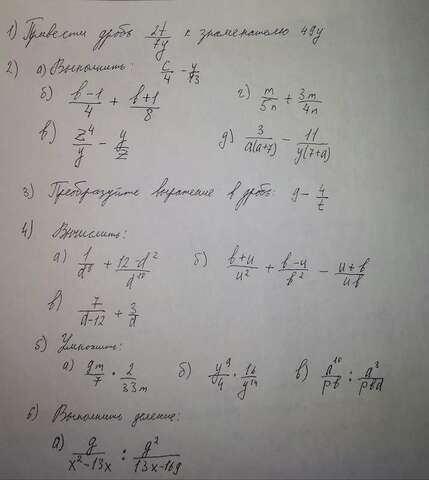 1) Привести дробь 2t/7y к знаменателю 49y
2) а) Выполнить: c/4 - y/13
б) (b-1)/4 + (b+1)/8 г) m/5n + 3m/4n
в) z^4/y - y/z д) 3/(a(a+7)) - 11/(y(7+a))
3) Преобразуйте выражение в дробь: g - 4/t
4) Вычислить:
а) 1/d^8 + (12-d^2)/d^18 б) (b+u)/u^2 + (b-u)/b^2 - (u+b)/ub
в) 7/(d-12) + 3/d
5) Умножить:
а) gm/7 · 2/33m б) y^9/4 · 16/y^14 в) a^18/pb : a^3/pbd
6) Выполнить деление:
а) g/(x^2-13x) : g^2/(13x-169)